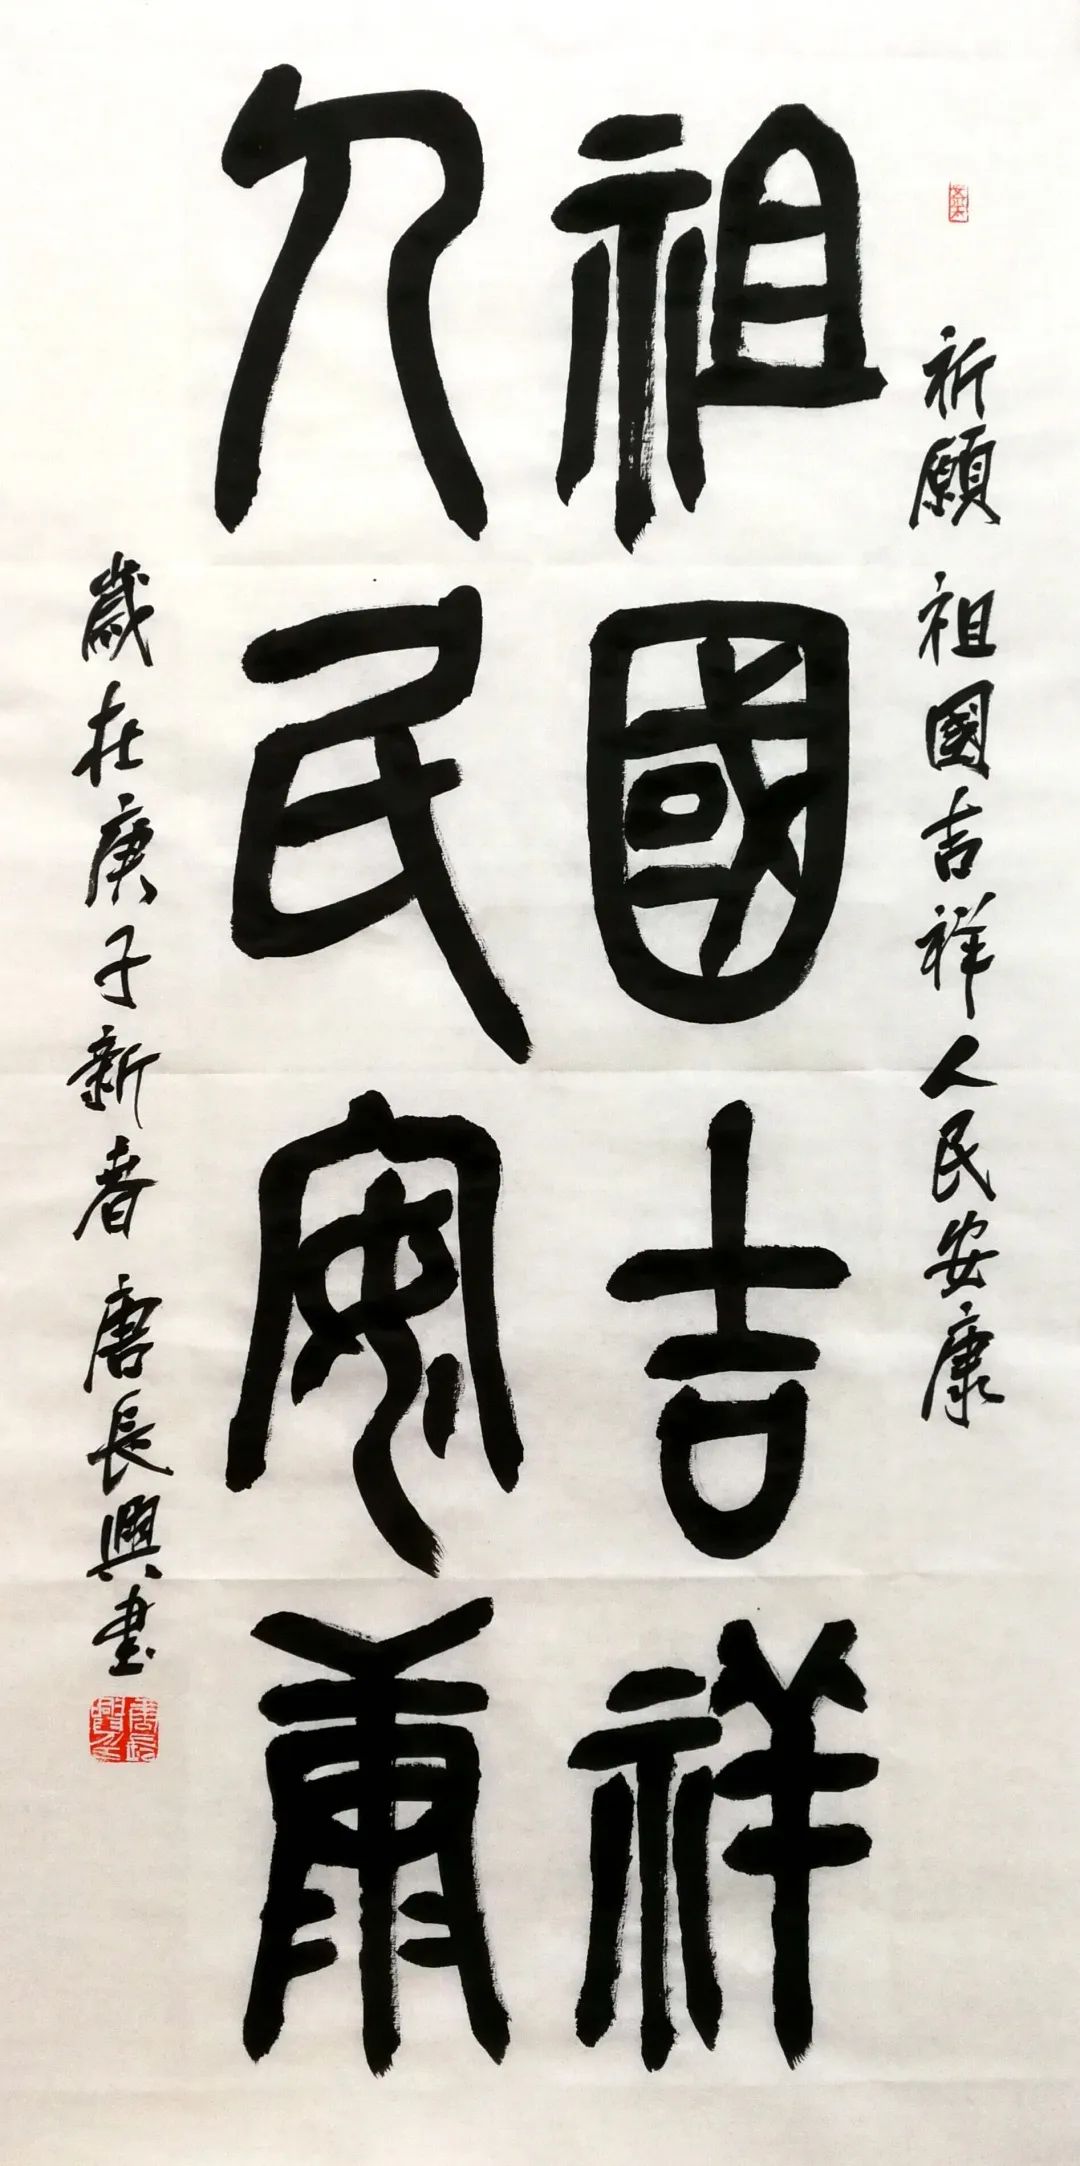 祈願祖國吉祥人民安康
祖國吉祥
人民安康
歲在庚子新春唐長興書